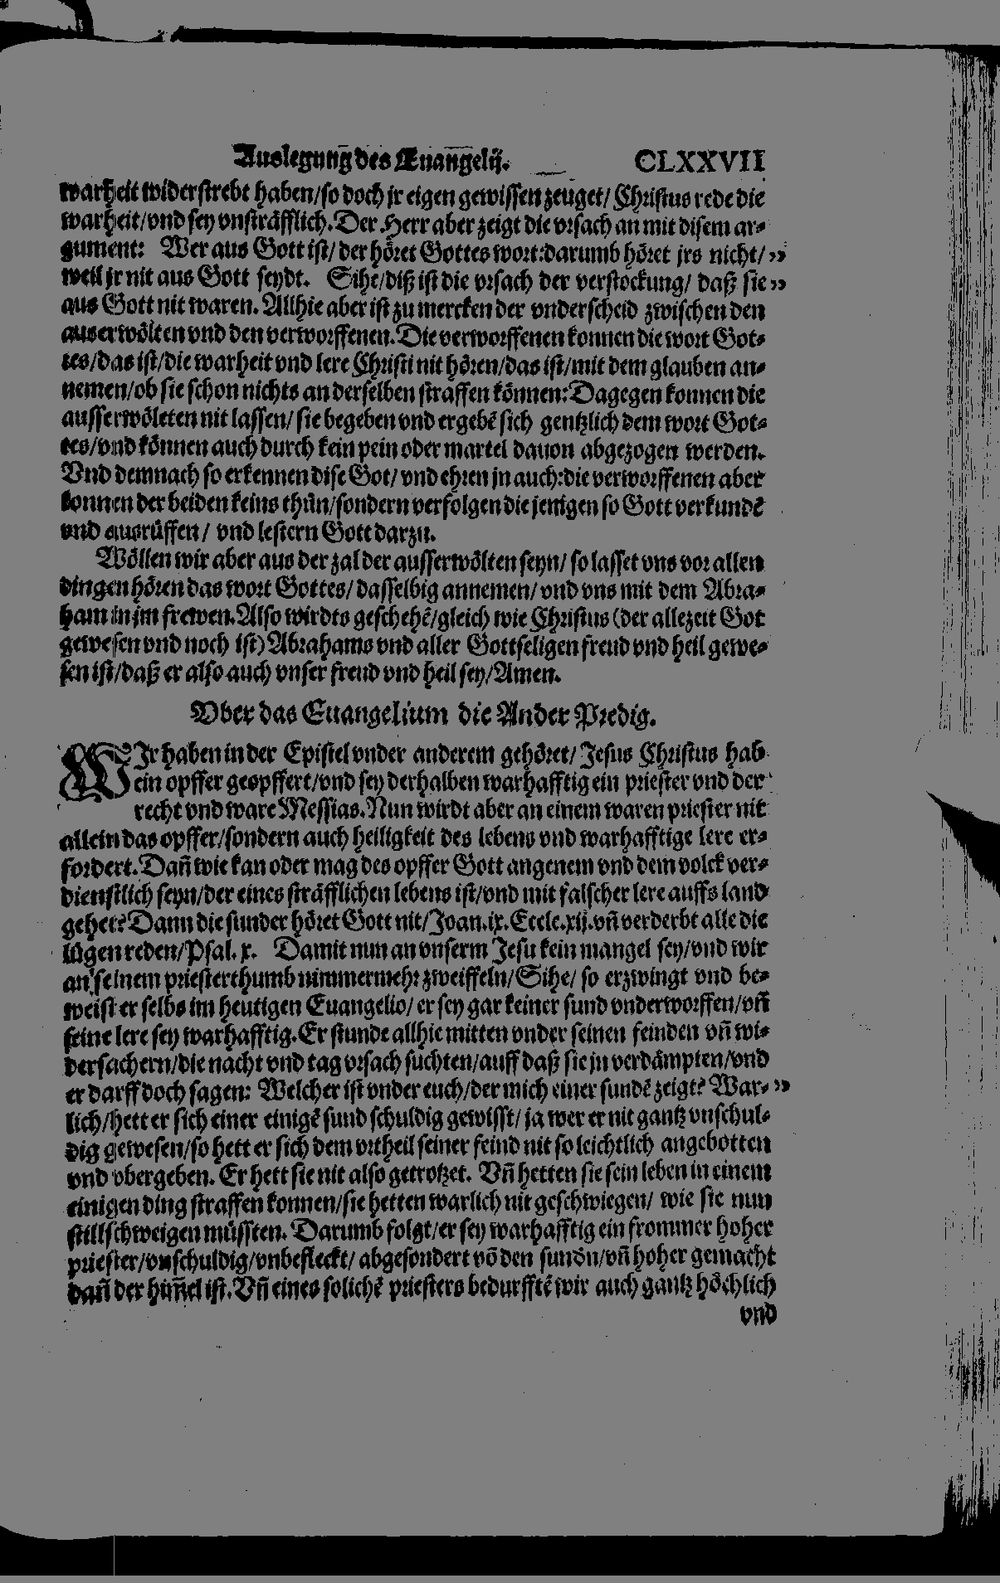 Auslegung des Euangelij. CLXXVII
warheit widerstrebt haben/so doch jr eigen gewissen zeuget/ Christus rede die
warheit/vnd sey vnsträfflich. Der Herr aber zeigt die vrsach an mit disem ar-
gument: Wer aus Gott ist/ der höret Gottes wort: darumb höret jrs nicht/ „
weil jr nit aus Gott seydt. Sihe/diß ist die vrsach der verstockung/ daß sie „
aus Gott nit waren. Allhie aber ist zu mercken der vnderscheid zwischen den
auserwölten vnd den verworffenen. Die verworffenen konnen die wort Got-
tes/das ist/die warheit vnd lere Christi nit hören/das ist/mit dem glauben an-
nemen/ob sie schon nichts an derselben straffen können: Dagegen konnen die
ausserwöleten nit lassen/ sie begeben vnd ergebē sich gentzlich dem wort Got-
tes/vnd können auch durch kein pein oder martel dauon abgezogen werden.
Vnd demnach so erkennen dise Got/ vnd ehren jn auch: die verworffenen aber
konnen der beiden keins thůn/sondern verfolgen die jenigen so Gott verkundē
vnd ausrüffen/ vnd lestern Gott darzu.
Wöllen wir aber aus der zal der ausserwölten seyn/ so lasset vns vor allen
dingen hören das wort Gottes/ dasselbig annemen/ vnd vns mit dem Abra-
ham in jm frewen. Also wirdts geschehē/gleich wie Christus (der allezeit Got
gewesen vnd noch ist) Abrahams vnd aller Gottseligen freud vnd heil gewe-
sen ist/daß er also auch vnser freud vnd heil sey/Amen.
Vber das Euangelium die Ander Predig.
WJr haben in der Epistel vnder anderem gehöret/ Jesus Christus hab
ein opffer geopffert/vnd sey derhalben warhafftig ein priester vnd der
recht vnd ware Messias. Nun wirdt aber an einem waren priester nit
allein das opffer/sondern auch heiligkeit des lebens vnd warhafftige lere er-
fordert. Dañ wie kan oder mag des opffer Gott angenem vnd dem volck ver-
dienstlich seyn/der eines sträfflichen lebens ist/vnd mit falscher lere auffs land
gehet? Dann die sunder höret Gott nit/Joan.ix. Eccle.xij. vñ verderbt alle die
lügen reden/Psal. x. Damit nun an vnserm Jesu kein mangel sey/vnd wir
an seinem priesterthumb nimmermehr zweiffeln/Sihe/ so erzwingt vnd be-
weist er selbs im heutigen Euangelio/ er sey gar keiner sund vnderworffen/vñ
seine lere sey warhafftig. Er stunde allhie mitten vnder seinen feinden vñ wi-
dersachern/die nacht vnd tag vrsach suchten/auff daß sie jn verdämpten/vnd
er darff doch sagen: Welcher ist vnder euch/der mich einer sundē zeigt? War- „
lich/hett er sich einer einigē sund schuldig gewisst/ ja wer er nit gantz vnschul-
dig gewesen/so hett er sich dem vrtheil seiner feind nit so leichtlich angebotten
vnd vbergeben. Er hett sie nit also getrotzet. Vñ hetten sie sein leben in einem
einigen ding straffen konnen/sie hetten warlich nit geschwiegen/ wie sie nun
stillschweigen müssten. Darumb folgt/er sey warhafftig ein frommer hoher
priester/vnschuldig/vnbefleckt/ abgesondert vō den sundn/vñ hoher gemacht
dañ der him̄el ist. Vñ eines solichē priesters bedurfftē wir auch gantz höchlich
vnd